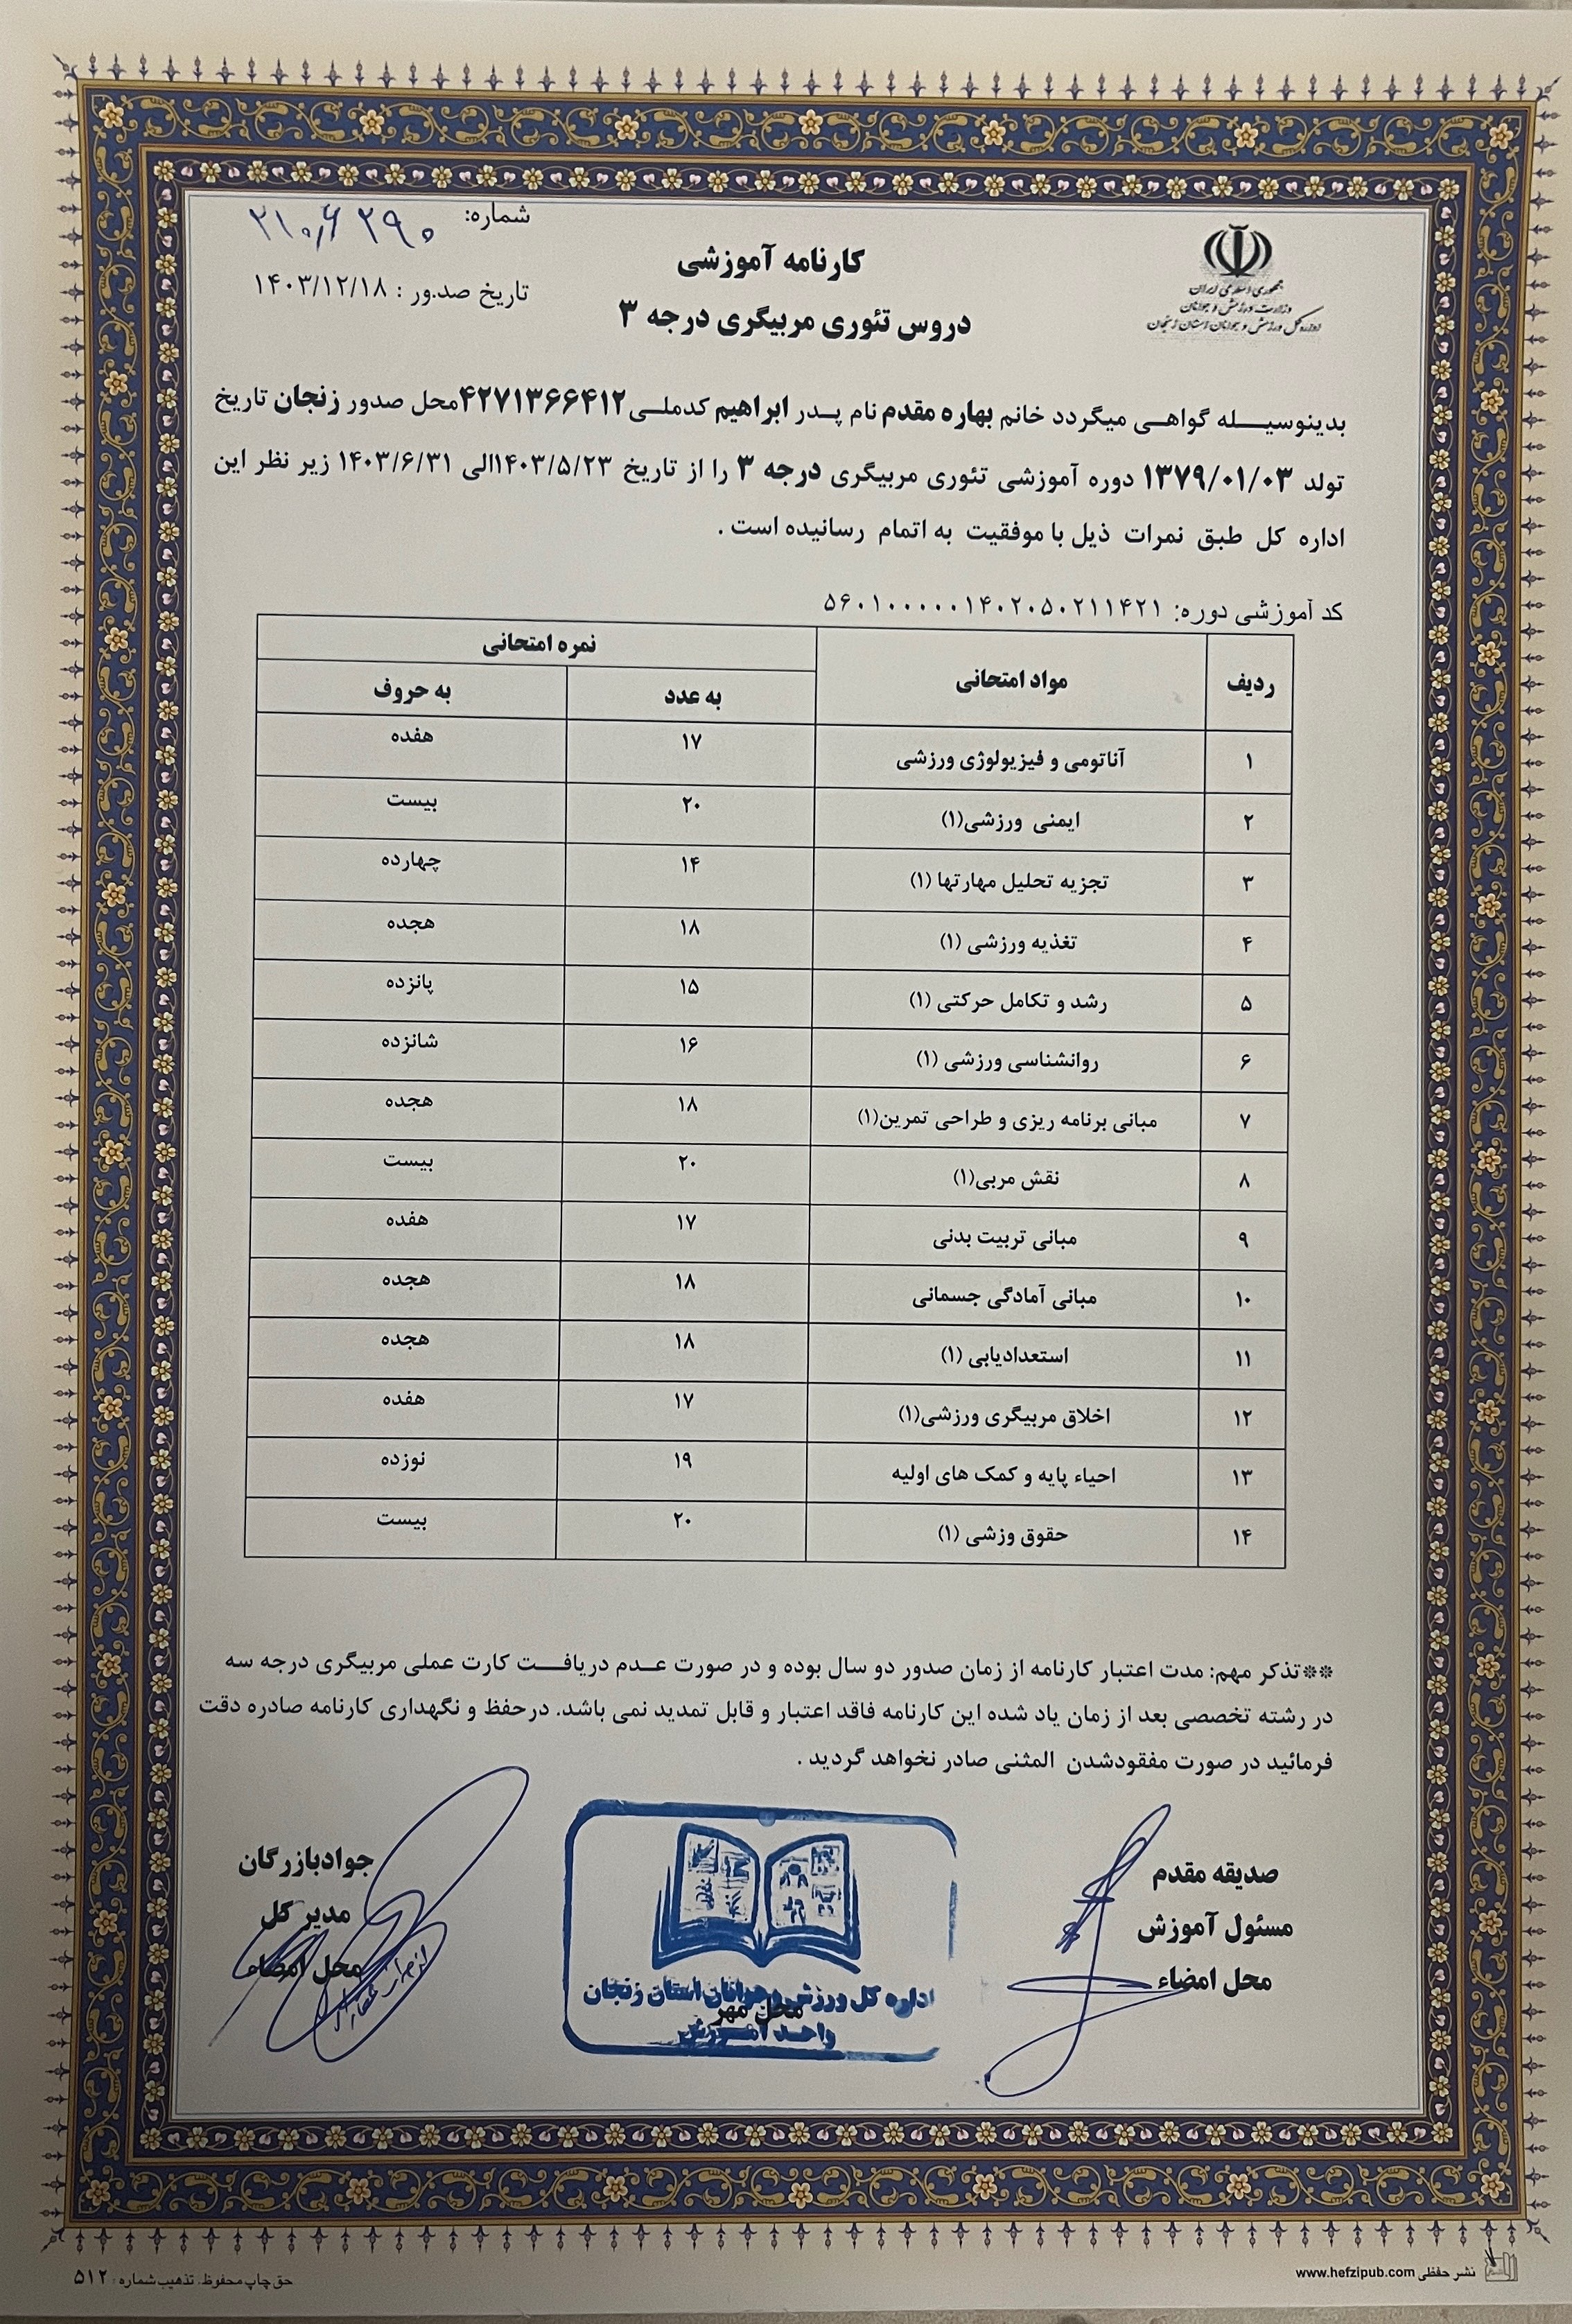 شماره: ۲۹۰
تاریخ صدور : ۱۴۰۳/۱۲/۱۸
جمهوری اسلامی ایران
وزارت ورزش و جوانان
اداره کل ورزش و جوانان استان زنجان
کارنامه آموزشی
دروس تئوری مربیگری درجه ۳
بدینوسیله گواهی میگردد خانم بهاره مقدم نام پدر ابراهیم کدملی ۴۲۷۱۳۶۶۴۱۲ محل صدور زنجان تاریخ
تولد ۱۳۷۹/۰۱/۰۳ دوره آموزشی تئوری مربیگری درجه ۳ را از تاریخ ۱۴۰۳/۵/۲۳ الی ۱۴۰۳/۶/۳۱ زیر نظر این
اداره کل طبق نمرات ذیل با موفقیت به اتمام رسانیده است .
کد آموزشی دوره: ۵۶۰۱۰۰۰۰۰۱۴۰۲۰۵۰۲۱۱۴۲۱
ردیف مواد امتحانی نمره امتحانی
به عدد به حروف
۱ آناتومی و فیزیولوژی ورزشی ۱۷ هفده
۲ ایمنی ورزشی(۱) ۲۰ بیست
۳ تجزیه تحلیل مهارتها (۱) ۱۴ چهارده
۴ تغذیه ورزشی (۱) ۱۸ هجده
۵ رشد و تکامل حرکتی (۱) ۱۵ پانزده
۶ روانشناسی ورزشی (۱) ۱۶ شانزده
۷ مبانی برنامه ریزی و طراحی تمرین(۱) ۱۸ هجده
۸ نقش مربی(۱) ۲۰ بیست
۹ مبانی تربیت بدنی ۱۷ هفده
۱۰ مبانی آمادگی جسمانی ۱۸ هجده
۱۱ استعدادیابی (۱) ۱۸ هجده
۱۲ اخلاق مربیگری ورزشی(۱) ۱۷ هفده
۱۳ احیاء پایه و کمک های اولیه ۱۹ نوزده
۱۴ حقوق وزشی (۱) ۲۰ بیست
**تذکر مهم: مدت اعتبار کارنامه از زمان صدور دو سال بوده و در صورت عدم دریافت کارت عملی مربیگری درجه سه
در رشته تخصصی بعد از زمان یاد شده این کارنامه فاقد اعتبار و قابل تمدید نمی باشد. درحفظ و نگهداری کارنامه صادره دقت
فرمائید در صورت مفقودشدن المثنی صادر نخواهد گردید .
صدیقه مقدم
مسئول آموزش
محل امضاء
اداره کل ورزش و جوانان استان زنجان
محل مهر
واحد آموزش
جوادبازرگان
مدیر کل
محل امضاء
نشر حفظی www.hefzipub.com
حق چاپ محفوظ. تذهیب شماره : ۵۱۲